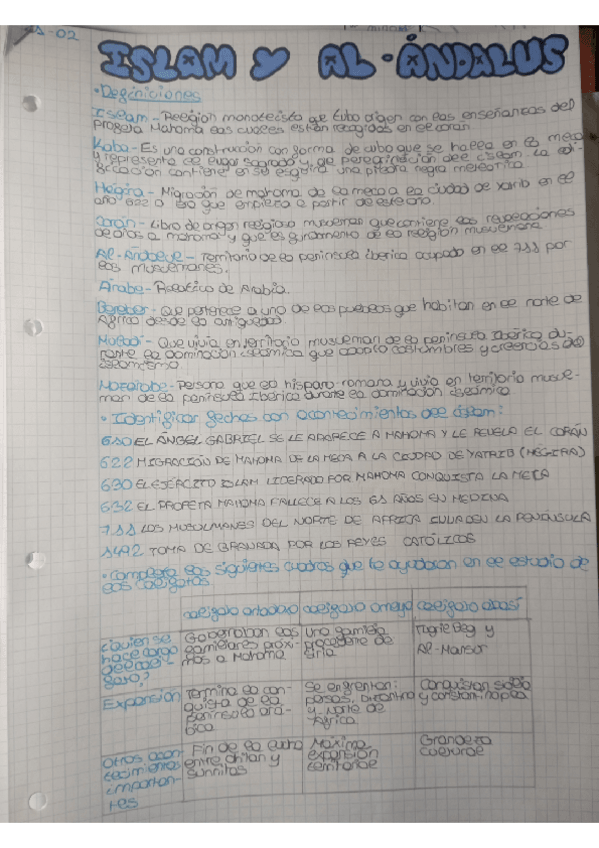 S-02
ISLAM Y AL-ÁNDALUS
• Definiciones
Islam - Religión monoteista que tubo origen con las enseñanzas del
profeta Mahoma las cuales están recogidas en el corán
Kaba - Es una construcción con forma de cubo que se halla en la meca
y representa el lugar sagrado y de peregrinación del islam. La edi-
ficación contiene en su esquina una piedra negra meteorito
Hégira - Migración de mahoma de la meca a la ciudad de Yatrib en el
año 622 a lo que empieza a partir de este año.
Corán - Libro de origen religioso musulman que contiene las revelaciones
de alos a mahoma y que es fundamento de la religión musulmana
Al-Andalus - Territorio de la península ibérica ocupado en el 711 por
los musulmanes.
Árabe - Relativo de Arabia.
Bereber - Que pertenece a uno de los pueblos que habitan en el norte de
África desde la antiguedad
Muladí - Que vivia en territorio musulman de la península Ibérica du-
rante la dominación islámica que adopto costumbres y creencias del
islamismo.
Mozárabe - Persona que era hispano-romana y vivió en territorio musul-
man de la península Ibérica durante la dominación islámica
• Identificar fechas con acontecimientos del islam:
610 EL ÁNGEL GABRIEL SE LE APARECE A MAHOMA Y LE REVELA EL CORÁN
622 MIGRACIÓN DE MAHOMA DE LA MECA A LA CIUDAD DE YATRIB (HÉGIRA)
630 EL EJERCITO ISLAM LIDERADO POR MAHOMA CONQUISTA LA MECA
632 EL PROFETA MAHOMA FALLECE A LOS 61 AÑOS EN MEDINA
711 LOS MUSULMANES DEL NORTE DE AFRICA INVADEN LA PENÍNSULA
1492 TOMA DE GRANADA POR LOS REYES CATÓLICOS
• Completa los siguientes cuadros que te ayudaran en el estudio de
los califatos.
califato ortodoxo califato omeya califato abasí
¿Quien se hace cargo del califato? Gobernaban los familiares próximos a Mahoma Una familia procedente de siria Tugril Beg y Al-Mansor
Expansión Termina la conquista de la península arábica Se enfrentan: persas, bizantino y norte de África Conquistan sicilia y constantinopla
Otros acontecimientos importantes Fin de la lucha entre chiían y sunnitas Máxima expansión territorial Grandeza cultural